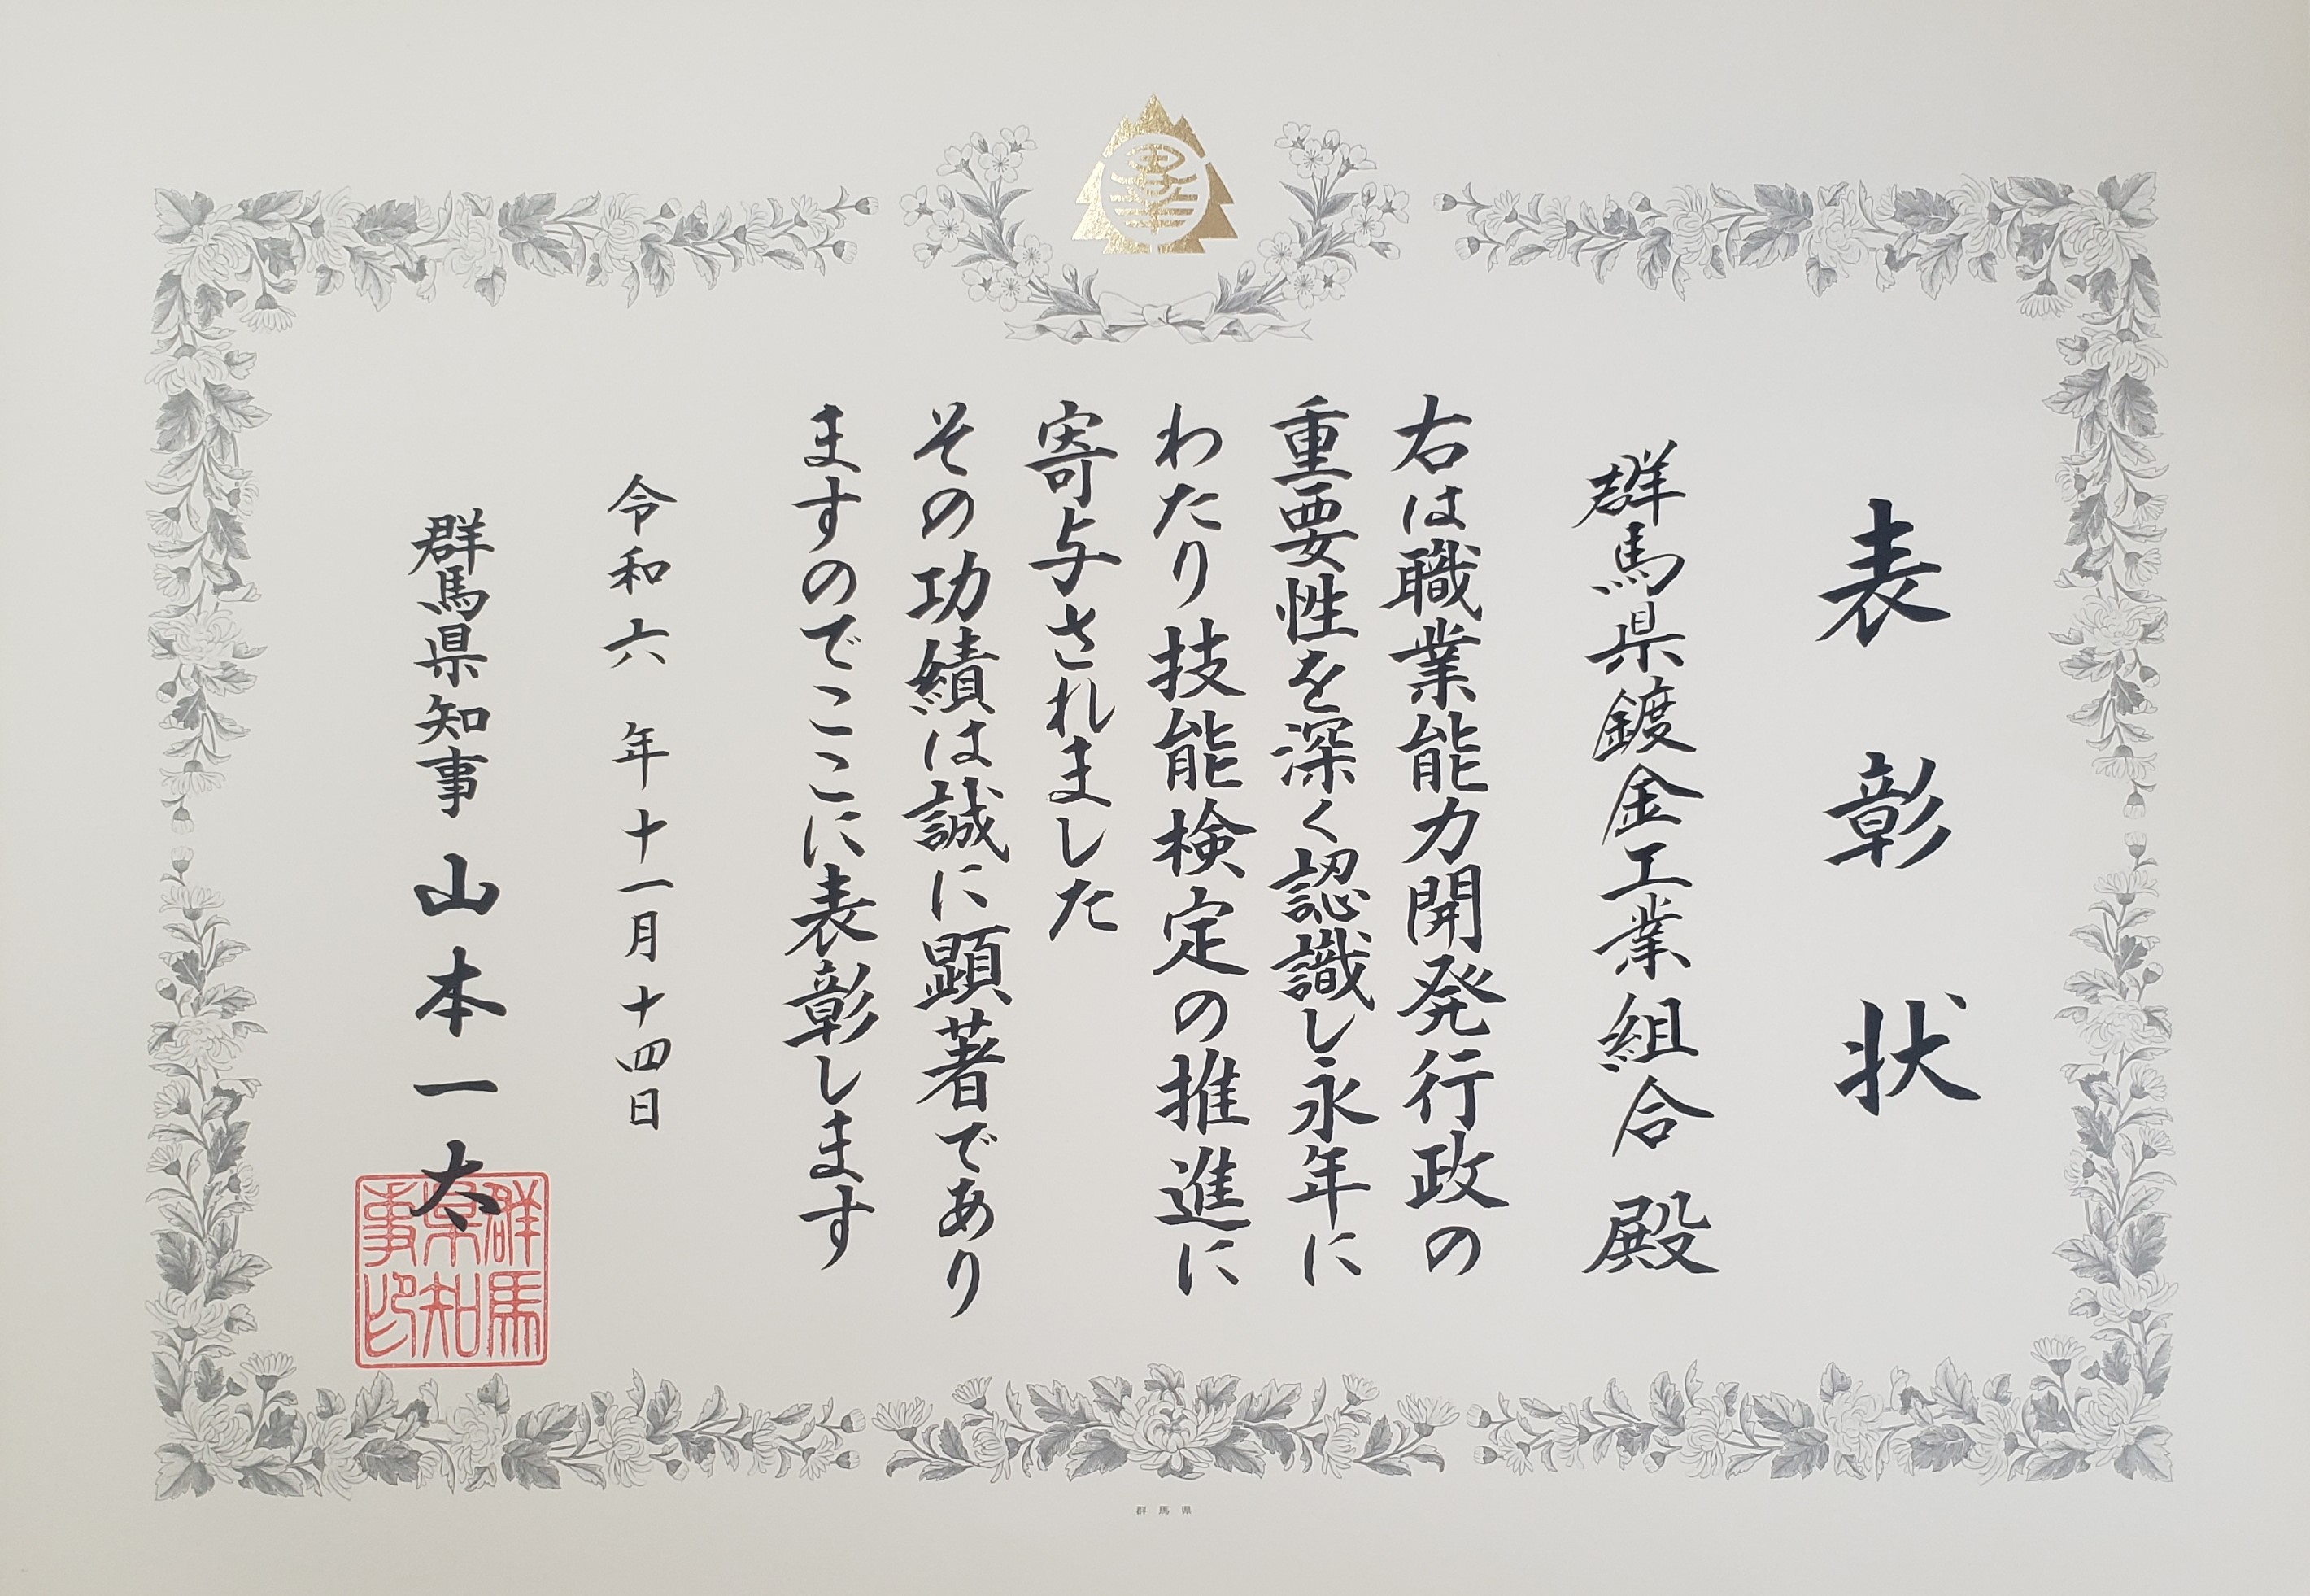 表彰状
群馬県鍍金工業組合 殿
右は職業能力開発行政の
重要性を深く認識し永年に
わたり技能検定の推進に
寄与されました
その功績は誠に顕著であり
ますのでここに表彰します
令和六年十一月十四日
群馬県知事 山本一太
群馬県知事印
群馬県